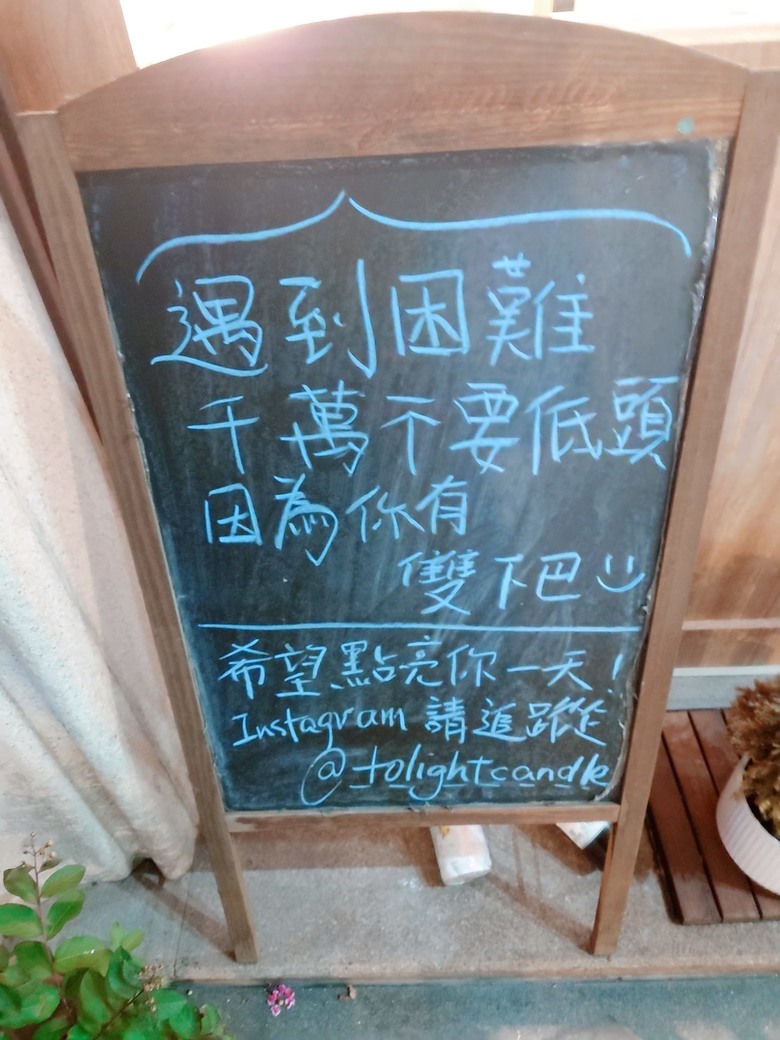 遇到困難
千萬不要低頭
因為你有
雙下巴
希望點亮你一天!
Instagram 請追蹤
@_tolightcandle_